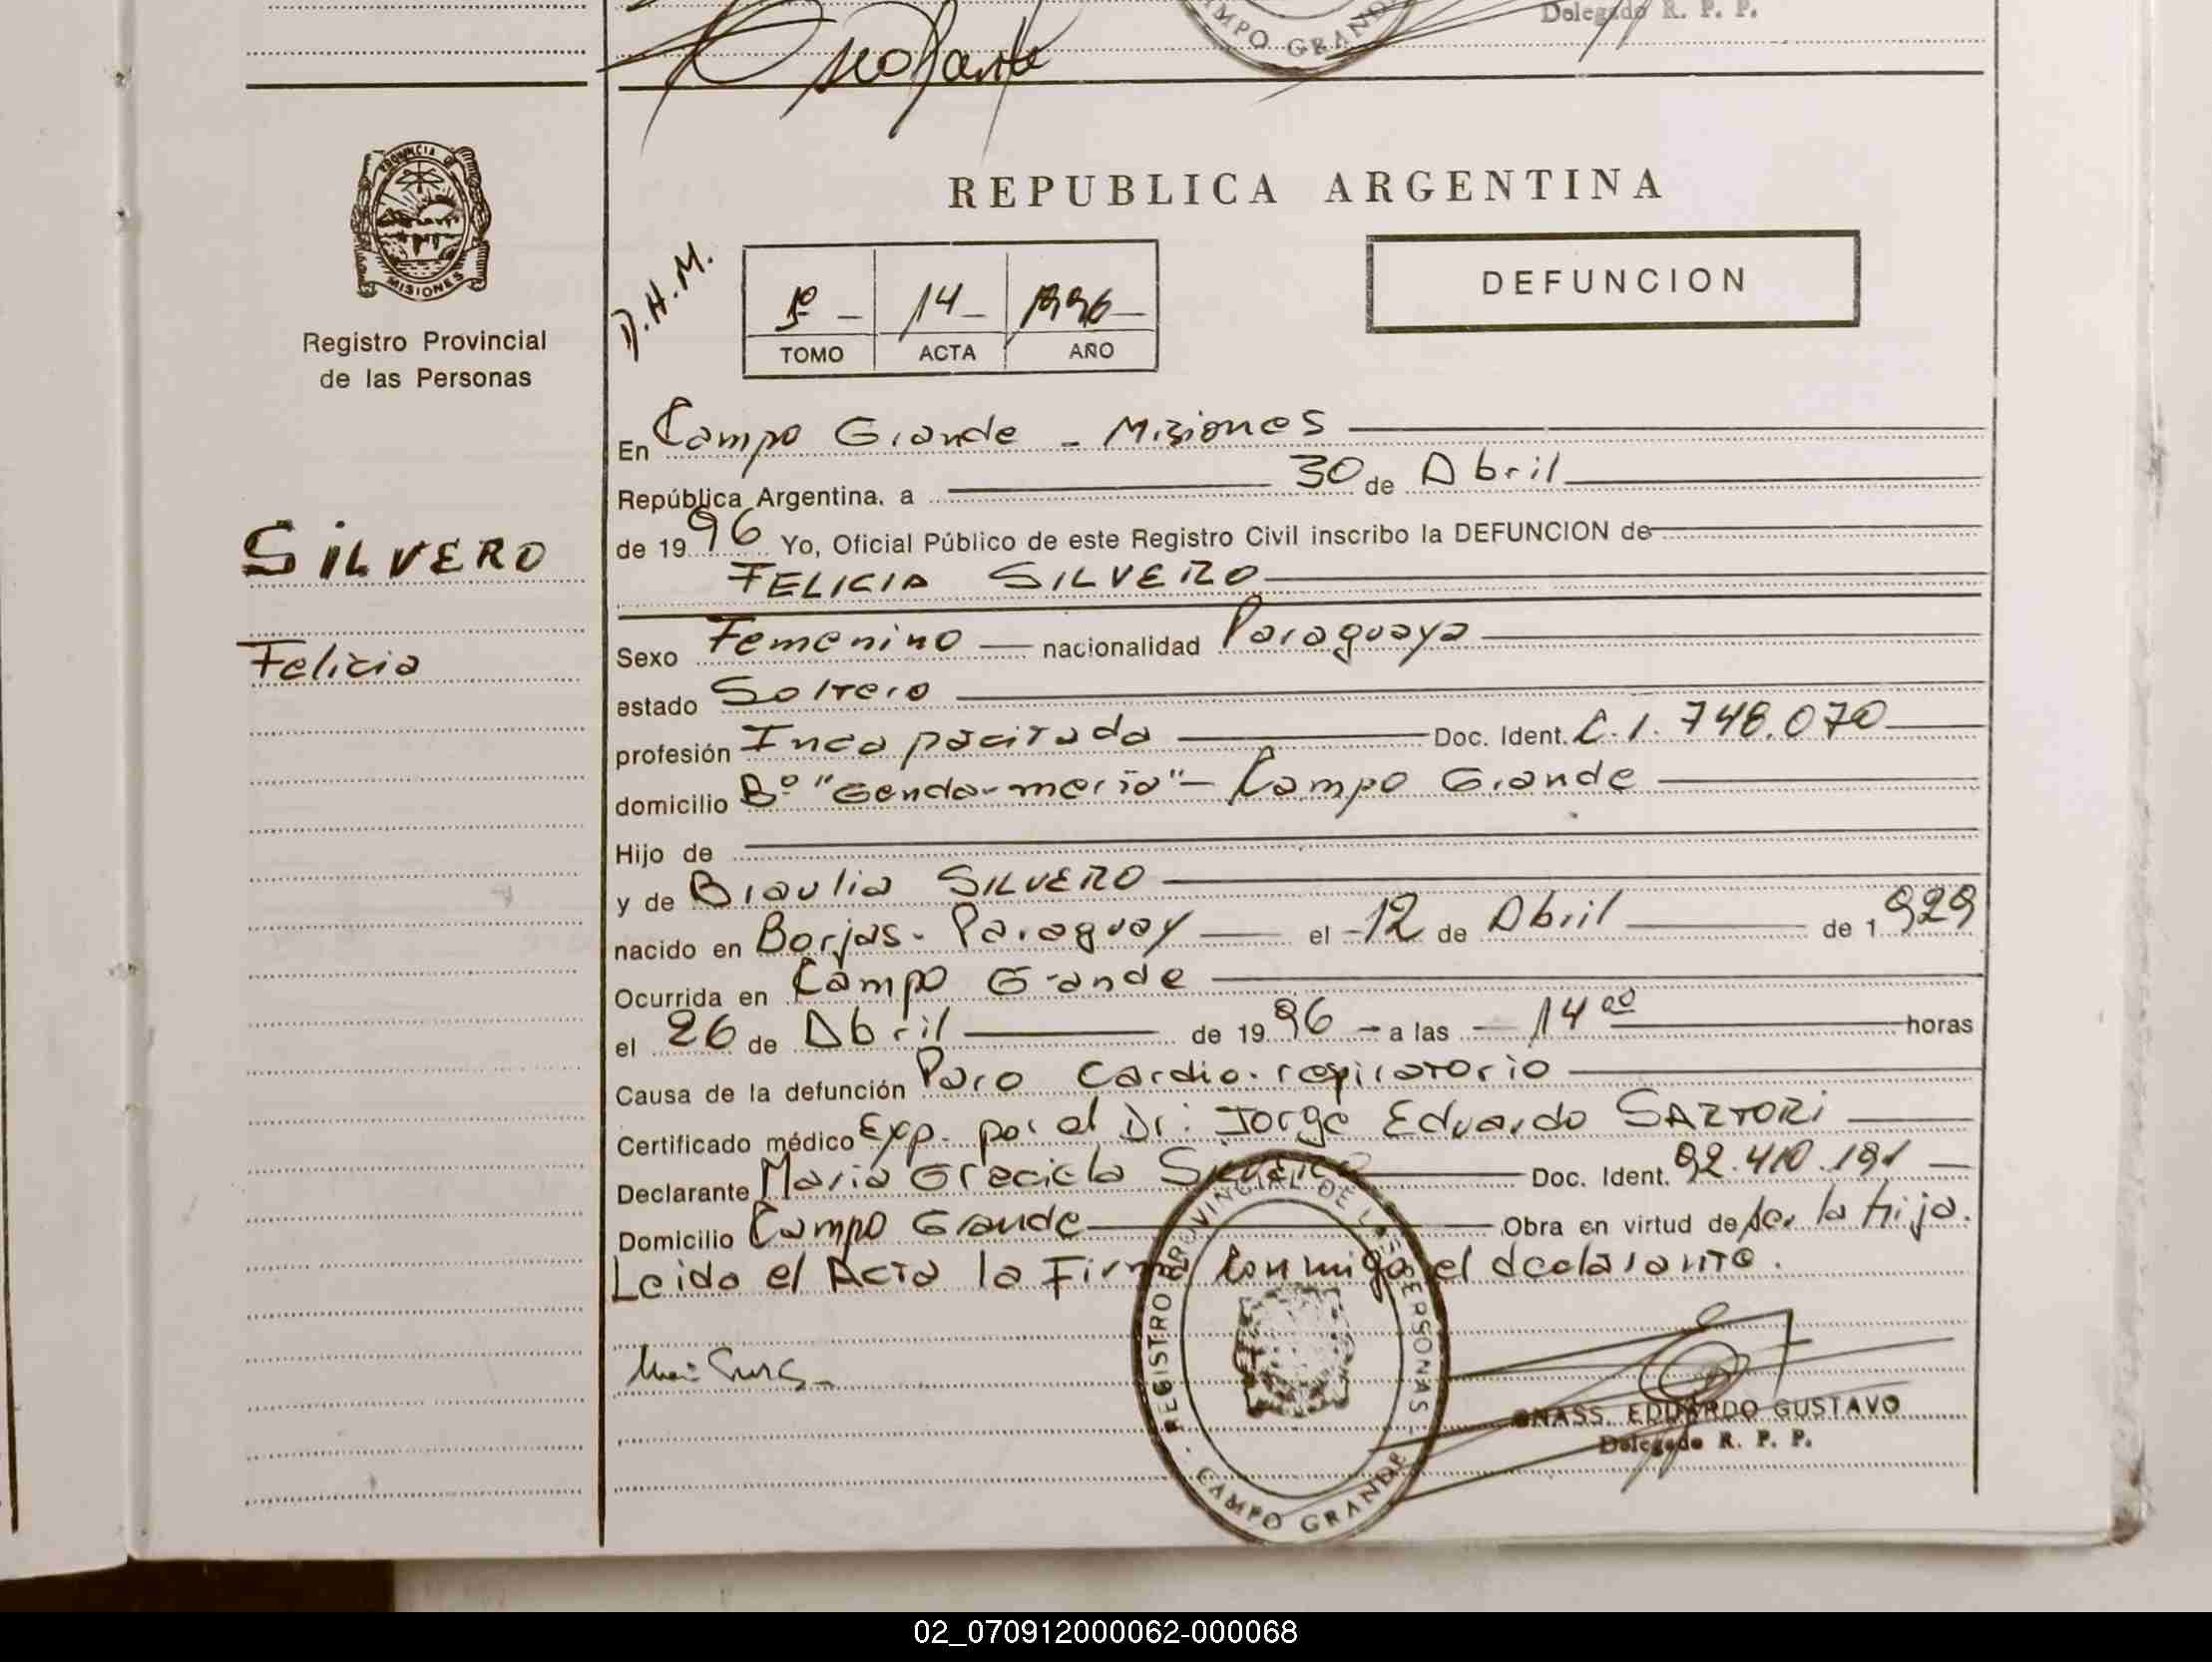 Delegado R. P. P.
CAMPO GRANDE
PROVINCIA DE
MISIONES
Registro Provincial
de las Personas
REPUBLICA ARGENTINA
D.H.M.
1º - 14 - 1996 -
TOMO ACTA AÑO
DEFUNCION
SILVERO
Felicia
En Campo Grande - Misiones
República Argentina, a 30 de Abril
de 1996 Yo, Oficial Público de este Registro Civil inscribo la DEFUNCION de
FELICIA SILVERO
Sexo Femenino nacionalidad Paraguaya
estado Soltero
profesión Incapacitada Doc. Ident. C.I. 748.070
domicilio Bº "Gendarmería" - Campo Grande
Hijo de
y de Braulia SILVERO
nacido en Borjas - Paraguay el -12 de Abril de 1929
Ocurrida en Campo Grande
el 26 de Abril de 1996 - a las 14 00 horas
Causa de la defunción Paro Cardio-respiratorio
Certificado médico Exp. por el Dr: Jorge Eduardo SARTORI
Declarante María Graciela SILVERO Doc. Ident. 92.410.191
Domicilio Campo Grande Obra en virtud de ser la hija.
Leida el Acta la Firma conmigo el declarante.
REGISTRO PROVINCIAL DE LAS PERSONAS
CAMPO GRANDE
GNASS, EDUARDO GUSTAVO
Delegado R. P. P.
02_070912000062-000068